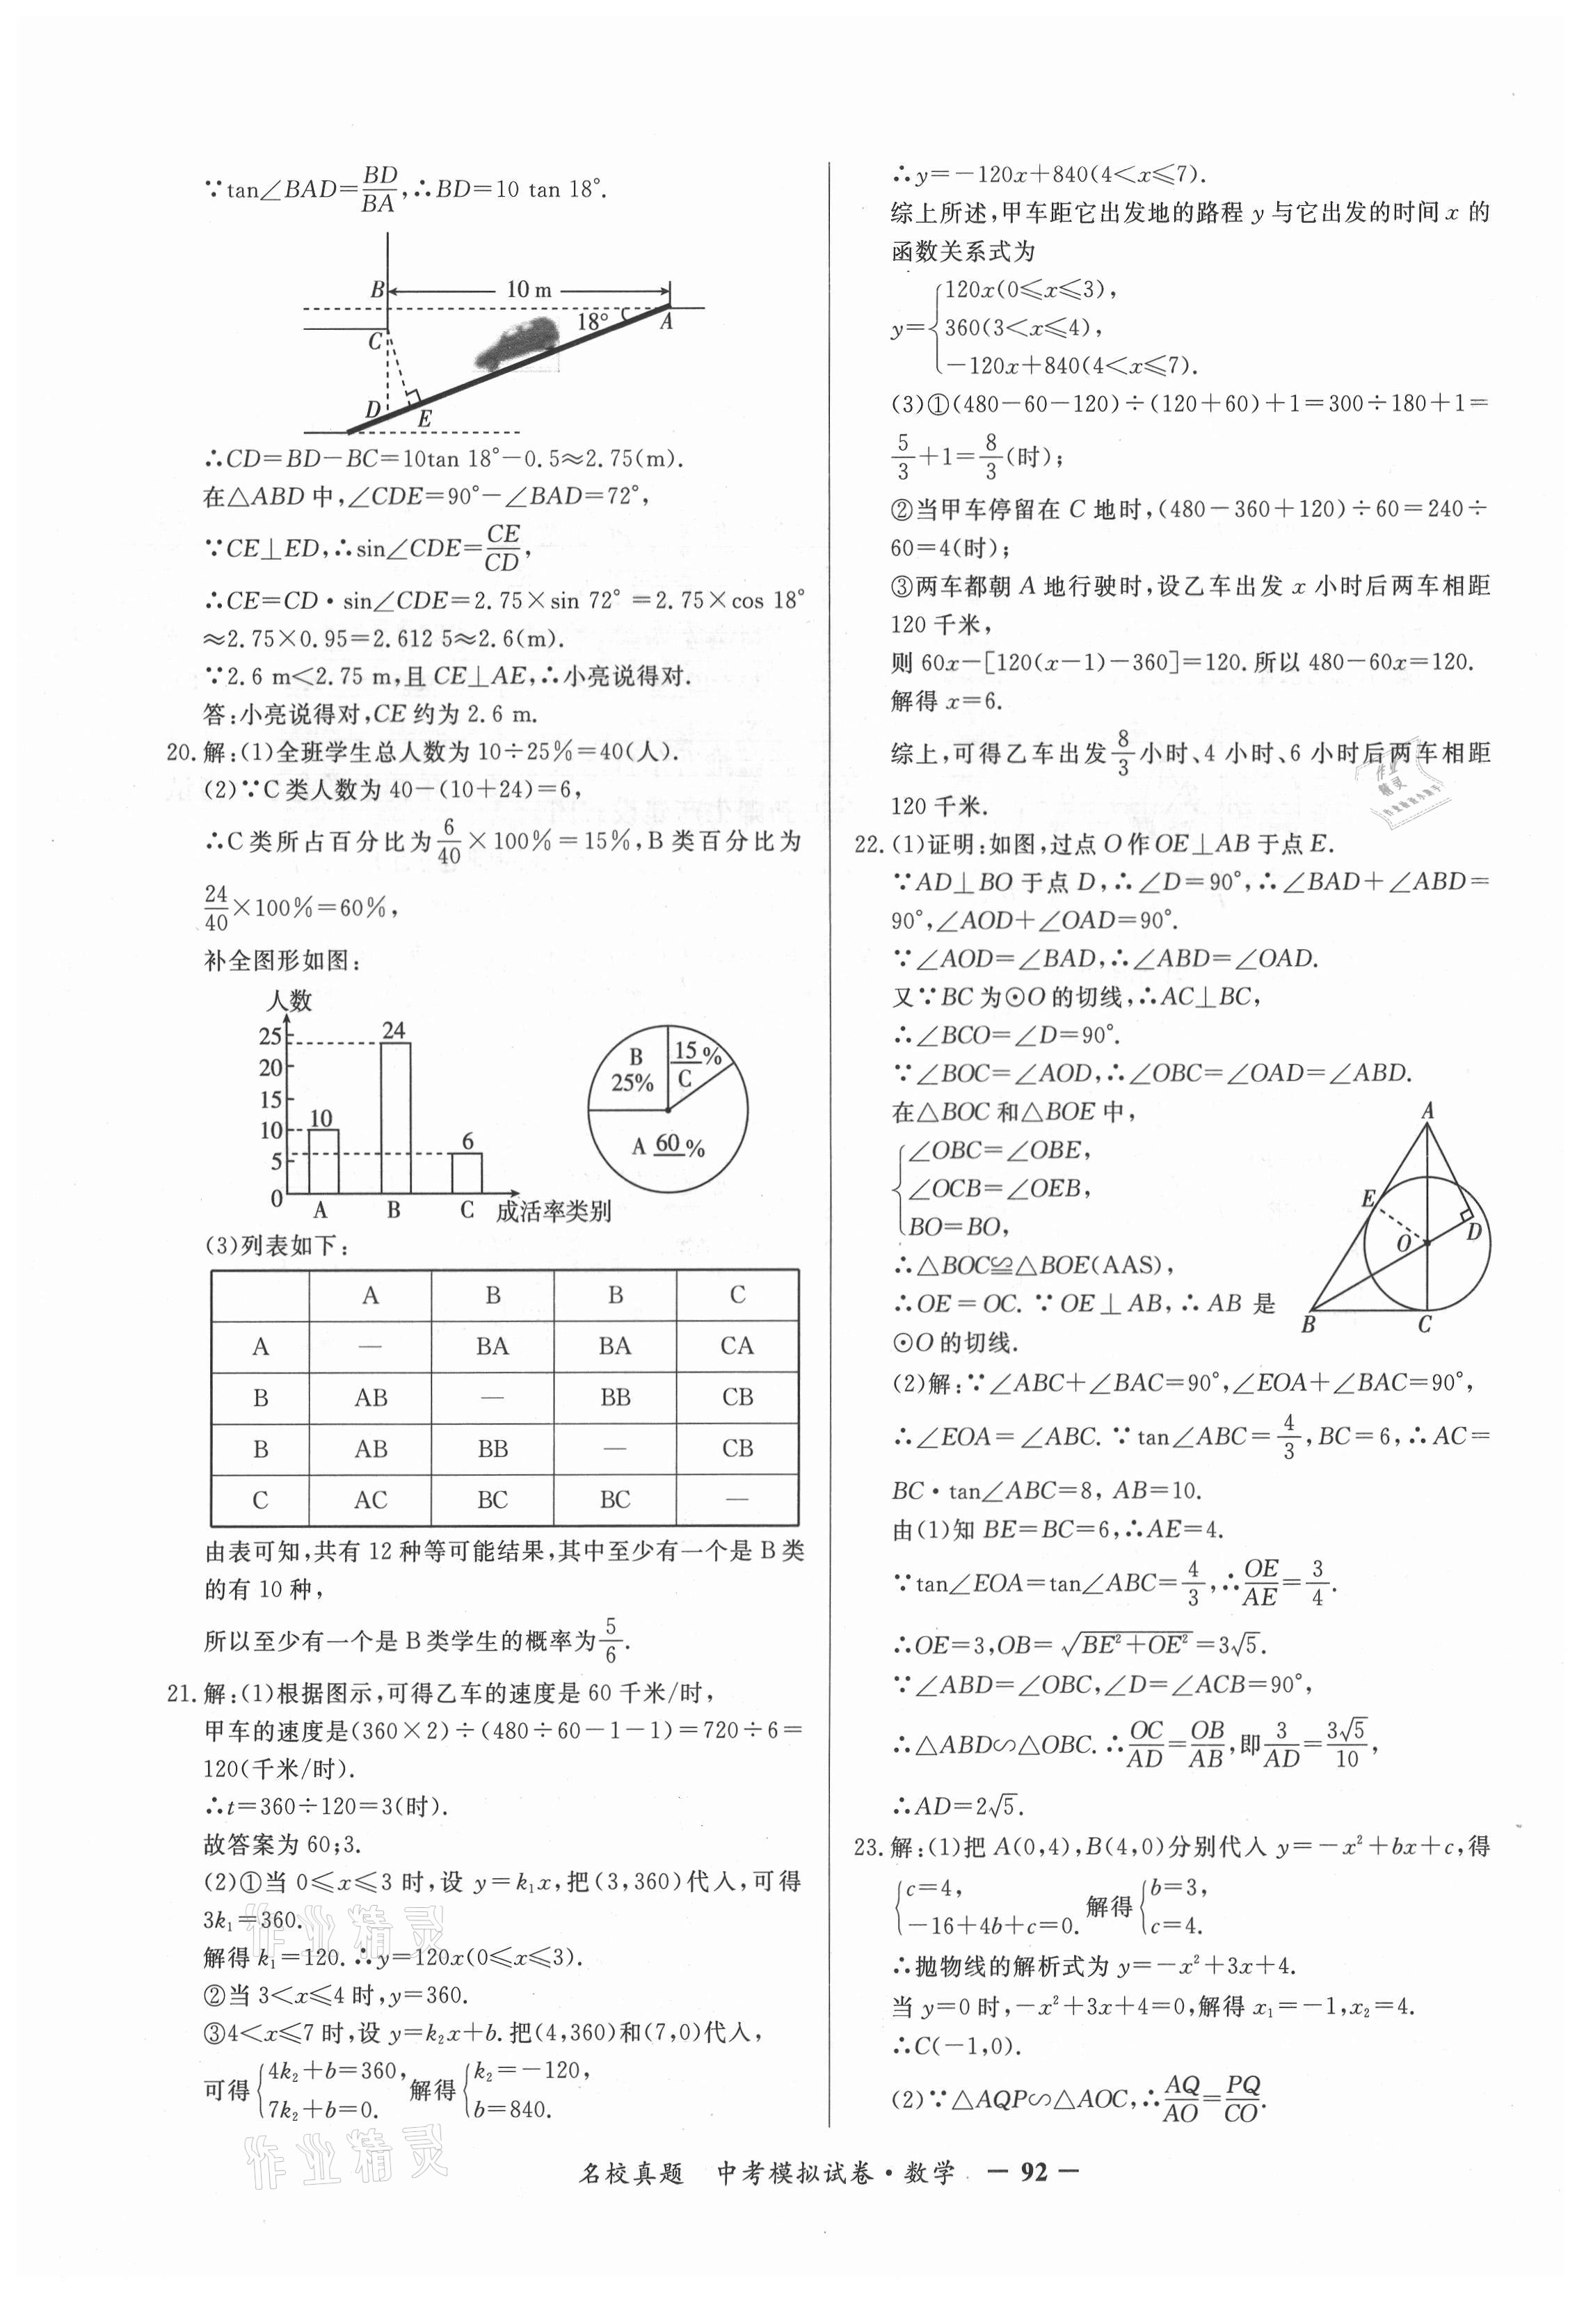 ∵tan∠BAD=BD/BA,∴BD=10 tan 18°.
B
10 m
18°
A
C
D
E
∴CD=BD-BC=10tan 18°-0.5≈2.75(m).
在△ABD中,∠CDE=90°-∠BAD=72°,
∵CE⊥ED,∴sin∠CDE=CE/CD,
∴CE=CD·sin∠CDE=2.75×sin 72°=2.75×cos 18°
≈2.75×0.95=2.612 5≈2.6(m).
∵2.6 m<2.75 m,且CE⊥AE,∴小亮说得对.
答:小亮说得对,CE约为2.6 m.
20.解:(1)全班学生总人数为10÷25%=40(人).
(2)∵C类人数为40-(10+24)=6,
∴C类所占百分比为6/40×100%=15%,B类百分比为
24/40×100%=60%,
补全图形如图:
人数
25
20
15
10
5
0
10
24
6
A B C 成活率类别
B
25%
15%
C
A 60%
(3)列表如下:
A B B C
A — BA BA CA
B AB — BB CB
B AB BB — CB
C AC BC BC —
由表可知,共有12种等可能结果,其中至少有一个是B类
的有10种,
所以至少有一个是B类学生的概率为5/6.
21.解:(1)根据图示,可得乙车的速度是60千米/时,
甲车的速度是(360×2)÷(480÷60-1-1)=720÷6=
120(千米/时).
∴t=360÷120=3(时).
故答案为60;3.
(2)①当0≤x≤3时,设y=k₁x,把(3,360)代入,可得
3k₁=360.
解得k₁=120.∴y=120x(0≤x≤3).
②当3<x≤4时,y=360.
③4<x≤7时,设y=k₂x+b.把(4,360)和(7,0)代入,
可得{4k₂+b=360, 7k₂+b=0. 解得{k₂=-120, b=840.
∴y=-120x+840(4<x≤7).
综上所述,甲车距它出发地的路程y与它出发的时间x的
函数关系式为
y={120x(0≤x≤3),
360(3<x≤4),
-120x+840(4<x≤7).
(3)①(480-60-120)÷(120+60)+1=300÷180+1=
5/3+1=8/3(时);
②当甲车停留在C地时,(480-360+120)÷60=240÷
60=4(时);
③两车都朝A地行驶时,设乙车出发x小时后两车相距
120千米,
则60x-[120(x-1)-360]=120.所以480-60x=120.
解得x=6.
综上,可得乙车出发8/3小时、4小时、6小时后两车相距
120千米.
22.(1)证明:如图,过点O作OE⊥AB于点E.
∵AD⊥BO于点D,∴∠D=90°,∴∠BAD+∠ABD=
90°,∠AOD+∠OAD=90°.
∵∠AOD=∠BAD,∴∠ABD=∠OAD.
又∵BC为⊙O的切线,∴AC⊥BC,
∴∠BCO=∠D=90°.
∵∠BOC=∠AOD,∴∠OBC=∠OAD=∠ABD.
在△BOC和△BOE中,
{∠OBC=∠OBE,
∠OCB=∠OEB,
BO=BO,
∴△BOC≌△BOE(AAS),
∴OE=OC.∵OE⊥AB,∴AB是
⊙O的切线.
A
E
O
D
B
C
(2)解:∵∠ABC+∠BAC=90°,∠EOA+∠BAC=90°,
∴∠EOA=∠ABC.∵tan∠ABC=4/3,BC=6,∴AC=
BC·tan∠ABC=8, AB=10.
由(1)知BE=BC=6,∴AE=4.
∵tan∠EOA=tan∠ABC=4/3,∴OE/AE=3/4.
∴OE=3,OB=√(BE²+OE²)=3√5.
∵∠ABD=∠OBC,∠D=∠ACB=90°,
∴△ABD∽△OBC.∴OC/AD=OB/AB,即3/AD=3√5/10,
∴AD=2√5.
23.解:(1)把A(0,4),B(4,0)分别代入y=-x²+bx+c,得
{c=4, -16+4b+c=0. 解得{b=3, c=4.
∴抛物线的解析式为y=-x²+3x+4.
当y=0时,-x²+3x+4=0,解得x₁=-1,x₂=4.
∴C(-1,0).
(2)∵△AQP∽△AOC,∴AQ/AO=PQ/CO.
名校真题 中考模拟试卷·数学 — 92 —
作业精灵
作业精灵
作业精灵